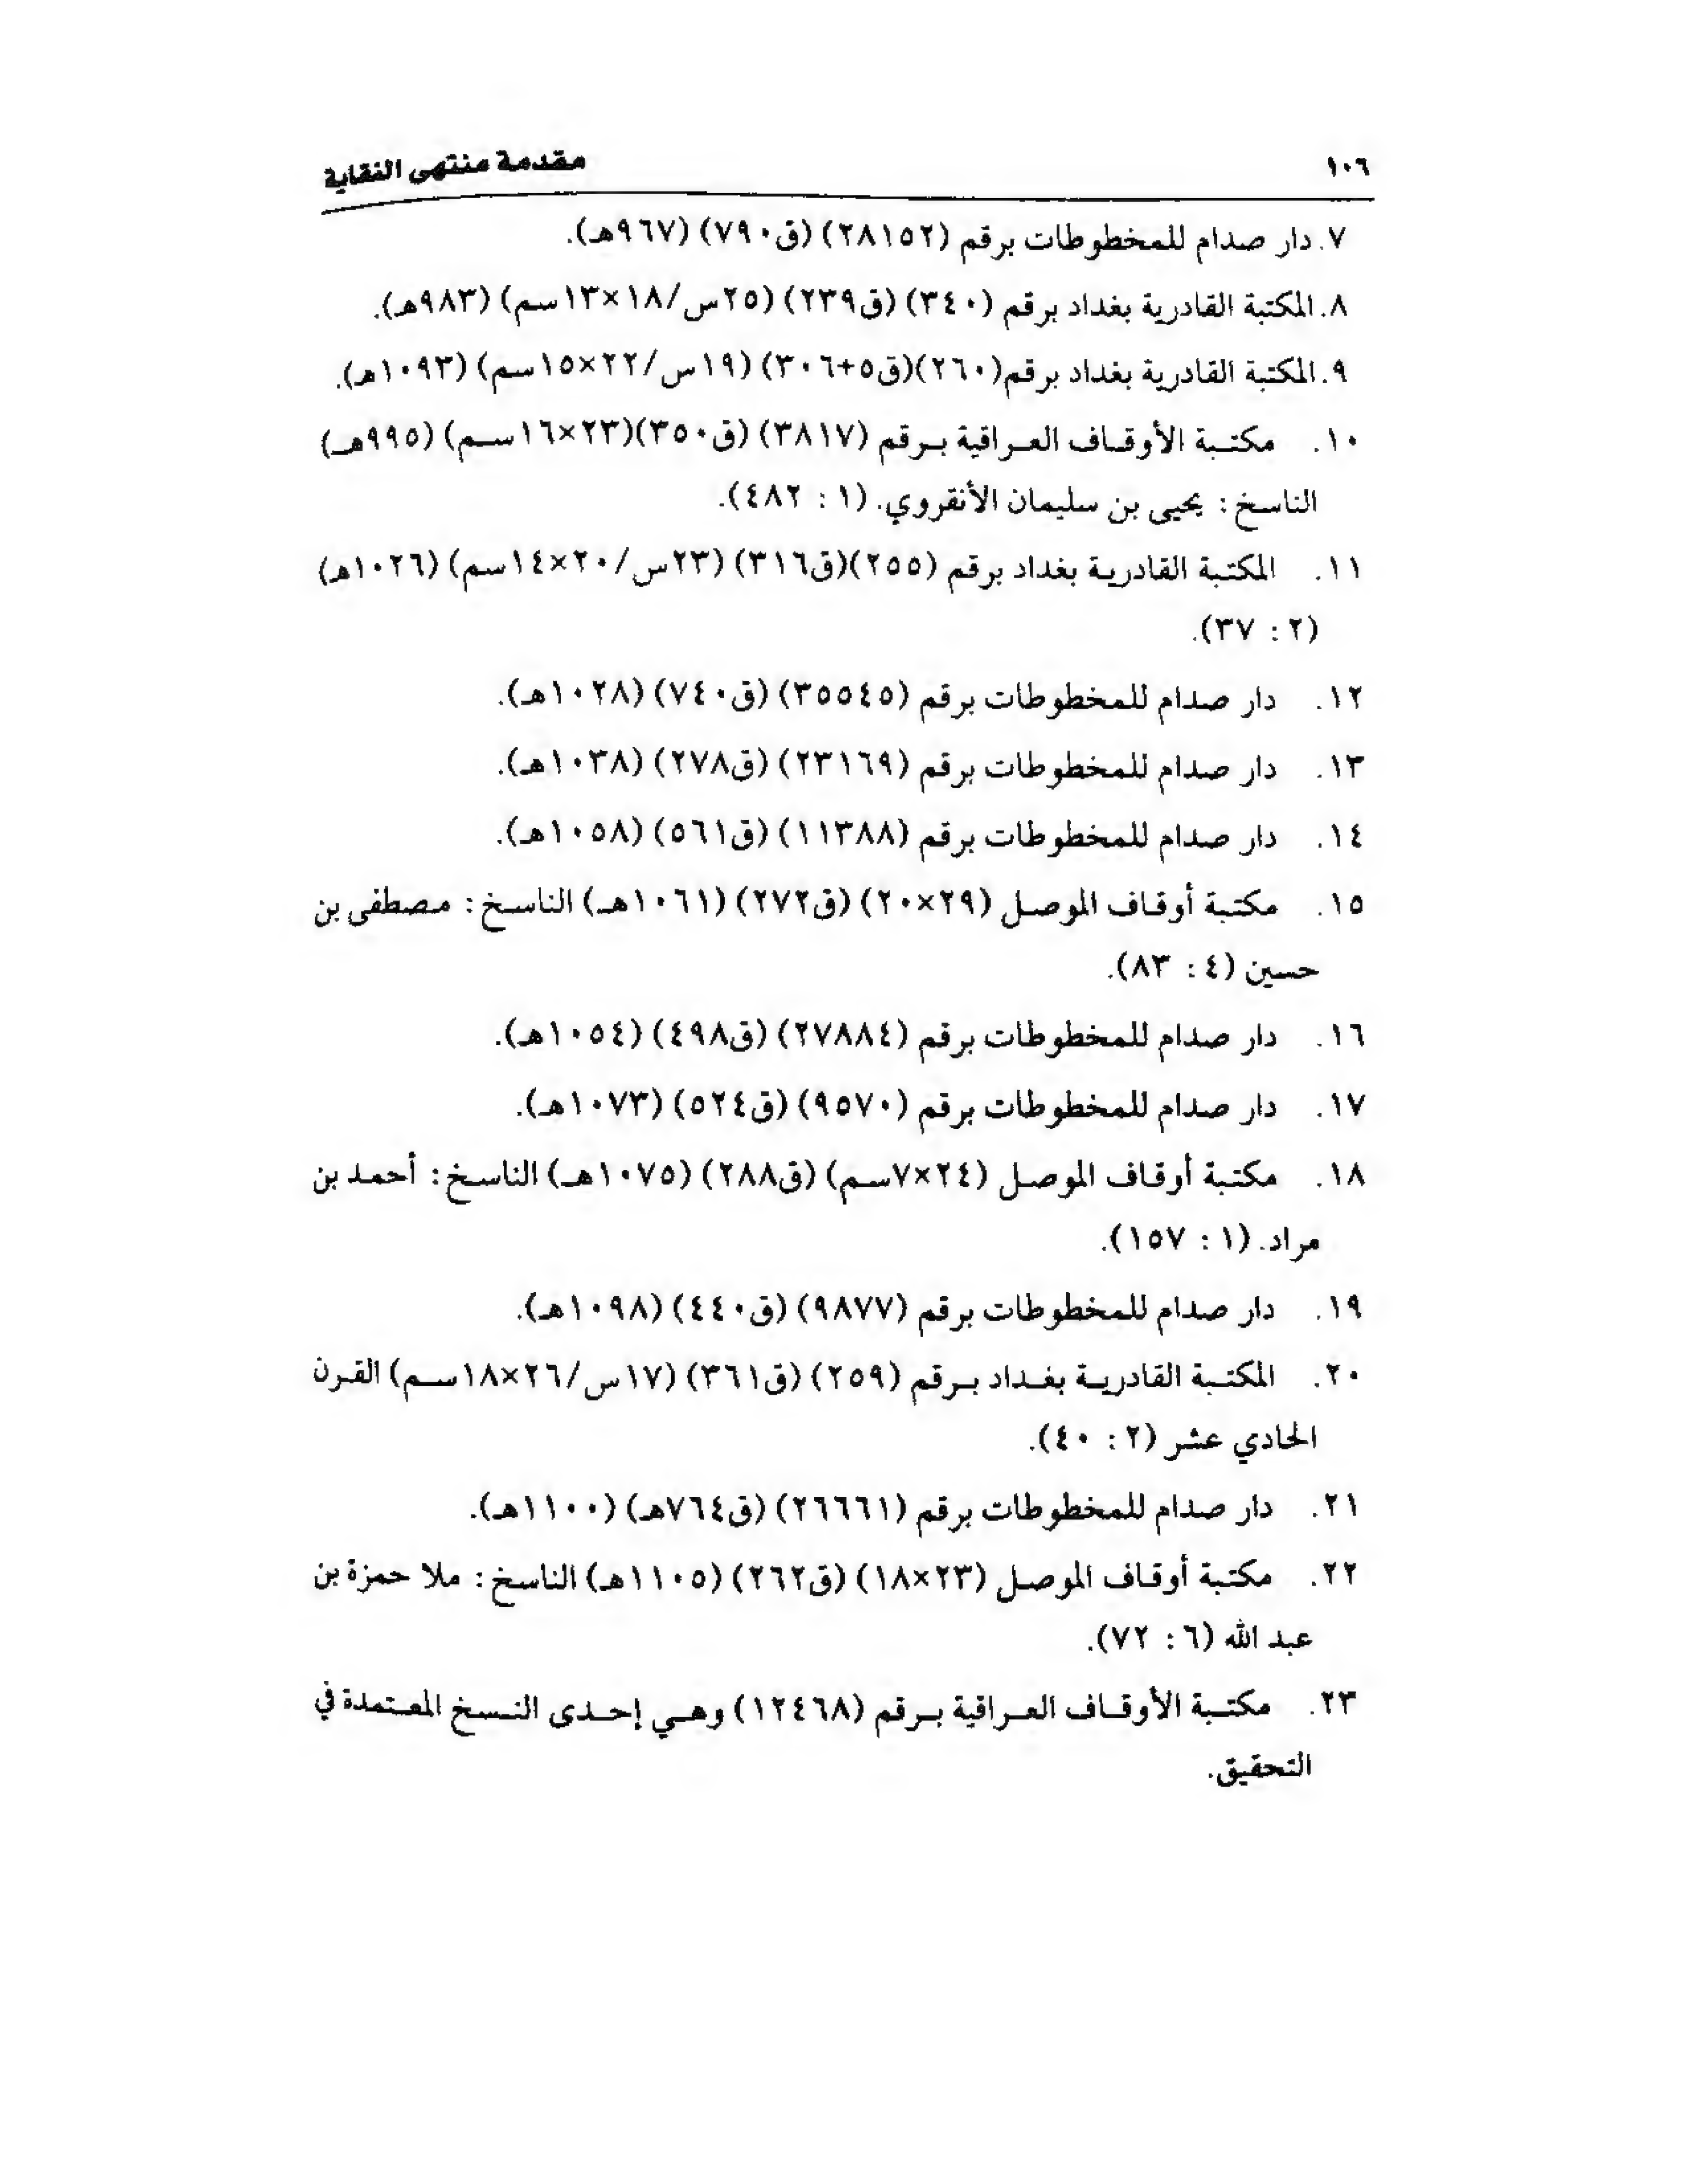 ١٠٦ مقدمة منتهى النقاية
٧. دار صدام للمخطوطات برقم (٢٨١٥٢) (ق٧٩٠) (٩٦٧هـ).
٨. المكتبة القادرية بغداد برقم (٣٤٠) (ق٢٣٩) (٢٥س/١٨×١٣سم) (٩٨٣هـ).
٩. المكتبة القادرية بغداد برقم(٢٦٠)(ق٥+٣٠٦) (١٩س/٢٢×١٥سم) (١٠٩٣هـ).
١٠. مكتبة الأوقاف العراقية برقم (٣٨١٧) (ق٣٥٠)(٢٣×١٦سم) (٩٩٥هـ)
الناسخ: يحيى بن سليمان الأنقروي. (١: ٤٨٢).
١١. المكتبة القادرية بغداد برقم (٢٥٥)(ق٣١٦) (٢٣س/٢٠×١٤سم) (١٠٢٦هـ)
(٢: ٣٧).
١٢. دار صدام للمخطوطات برقم (٣٥٥٤٥) (ق٧٤٠) (١٠٢٨هـ).
١٣. دار صدام للمخطوطات برقم (٢٣١٦٩) (ق٢٧٨) (١٠٣٨هـ).
١٤. دار صدام للمخطوطات برقم (١١٣٨٨) (ق٥٦١) (١٠٥٨هـ).
١٥. مكتبة أوقاف الموصل (٢٩×٢٠) (ق٢٧٢) (١٠٦١هـ) الناسخ: مصطفى بن
حسين (٤: ٨٣).
١٦. دار صدام للمخطوطات برقم (٢٧٨٨٤) (ق٤٩٨) (١٠٥٤هـ).
١٧. دار صدام للمخطوطات برقم (٩٥٧٠) (ق٥٢٤) (١٠٧٣هـ).
١٨. مكتبة أوقاف الموصل (٢٤×٧سم) (ق٢٨٨) (١٠٧٥هـ) الناسخ: أحمد بن
مراد. (١: ١٥٧).
١٩. دار صدام للمخطوطات برقم (٩٨٧٧) (ق٤٤٠) (١٠٩٨هـ).
٢٠. المكتبة القادرية بغداد برقم (٢٥٩) (ق٣٦١) (١٧س/٢٦×١٨سم) القرن
الحادي عشر (٢: ٤٠).
٢١. دار صدام للمخطوطات برقم (٢٦٦٦١) (ق٧٦٤هـ) (١١٠٠هـ).
٢٢. مكتبة أوقاف الموصل (٢٣×١٨) (ق٢٦٢) (١١٠٥هـ) الناسخ: ملا حمزة بن
عبد الله (٦: ٧٢).
٢٣. مكتبة الأوقاف العراقية برقم (١٢٤٦٨) وهي إحدى النسخ المعتمدة في
التحقيق.